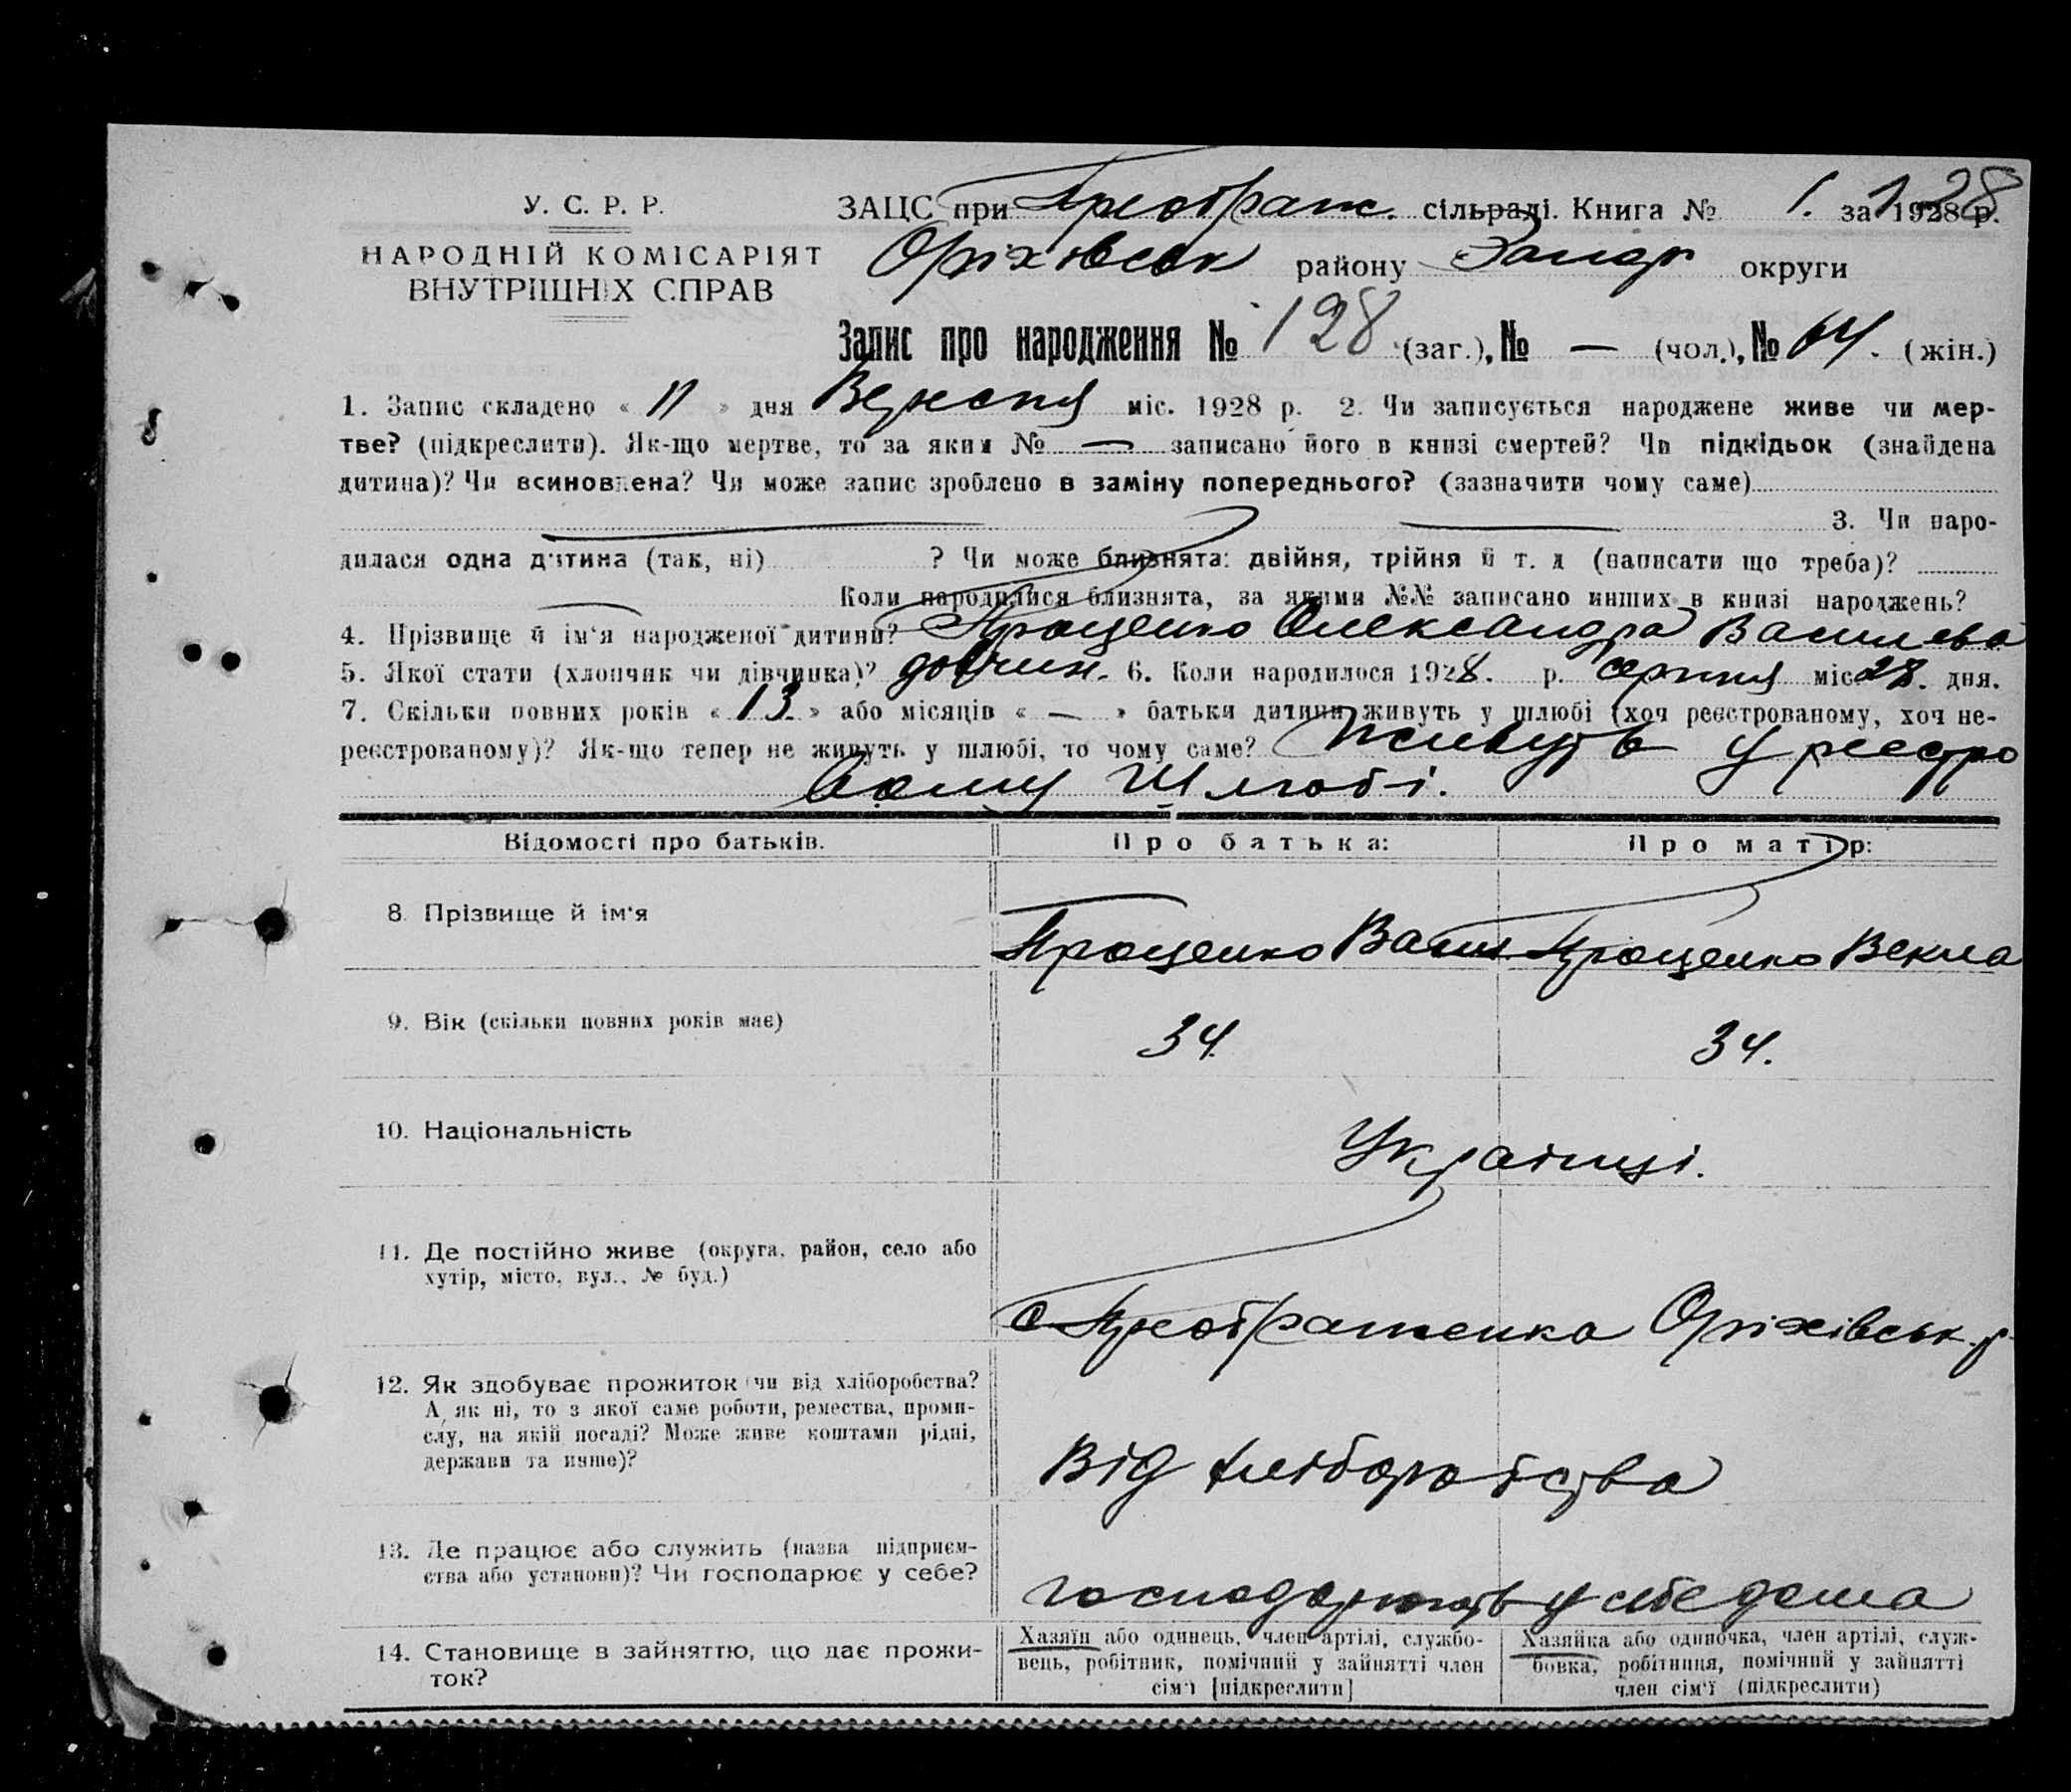 У. С. Р. Р.
НАРОДНІЙ КОМІСАРІЯТ
ВНУТРІШНІХ СПРАВ
ЗАЦС при Преображ. сільраді. Книга № 1. за 1928 р.
Оріхівськ району Запор округи
Запис про народження № 128 (заг.), № — (чол.), № 64. (жін.)
1. Запис складено « 11 » дня Вересня міс. 1928 р. 2. Чи записується народжене живе чи мер-
тве? (підкреслити). Як-що мертве, то за яким № — записано його в книзі смертей? Чи підкідьок (знайдена
дитина)? Чи всиновлена? Чи може запис зроблено в заміну попереднього? (зазначити чому саме)
3. Чи наро-
дилася одна дитина (так, ні) ? Чи може близнята: двійня, трійня й т. д (написати що треба)?
Коли народилися близнята, за якими №№ записано инших в книзі народжень?
4. Прізвище й ім'я народженої дитини? Проценко Олександра Василева
5. Якої стати (хлопчик чи дівчинка)? дівчин. 6. Коли народилося 1928. р. серпня міс. 28. дня.
7. Скільки повних років « 13. » або місяців « — » батьки дитини живуть у шлюбі (хоч реєстрованому, хоч не-
реєстрованому)? Як-що тепер не живуть у шлюбі, то чому саме? Живуть у реєстро
ваному Шлюбі.
Відомості про батьків. Про батька: Про матір:
8. Прізвище й ім'я Проценко Васил Проценко Векла
9. Вік (скільки повних років має) 34. 34.
10. Національність Українці.
11. Де постійно живе (округа, район, село або
хутір, місто, вул., № буд.)
с Преображенка Оріхівськ. р
12. Як здобуває прожиток (чи від хліборобства?
А як ні, то з якої саме роботи, ремества, проми-
слу, на якій посаді? Може живе коштами рідні,
держави та инше)?
Від хліборобства
13. Де працює або служить (назва підприєм-
ства або установи)? Чи господарює у себе?
господарюють у себе дома
14. Становище в зайняттю, що дає прожи-
ток?
Хазяїн або одинець, член артілі, службо-
вець, робітник, помічний у зайнятті член
сім'ї [підкреслити]
Хазяйка або одиночка, член артілі, служ-
бовка, робітниця, помічний у зайнятті
член сім'ї (підкреслити)